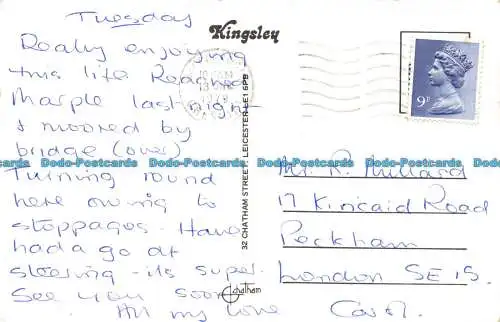 Tuesday
Really enjoying
this life Reached
Marple last night
& moored by
bridge (over)
Turning round
here owing to
stoppages. Have
had a go at
steering - its super.
See you soon
All my love
Carol.
Kingsley
32 CHATHAM STREET LEICESTER LE1 6PB
Chatham
9P
Mr. R. Millard
17 Kincaid Road
Peckham
London SE 15.
Dodo-Postcards Dodo-Postcards Dodo-Postcards Dodo-Postcards Dodo-Postcards Dodo-Postcards